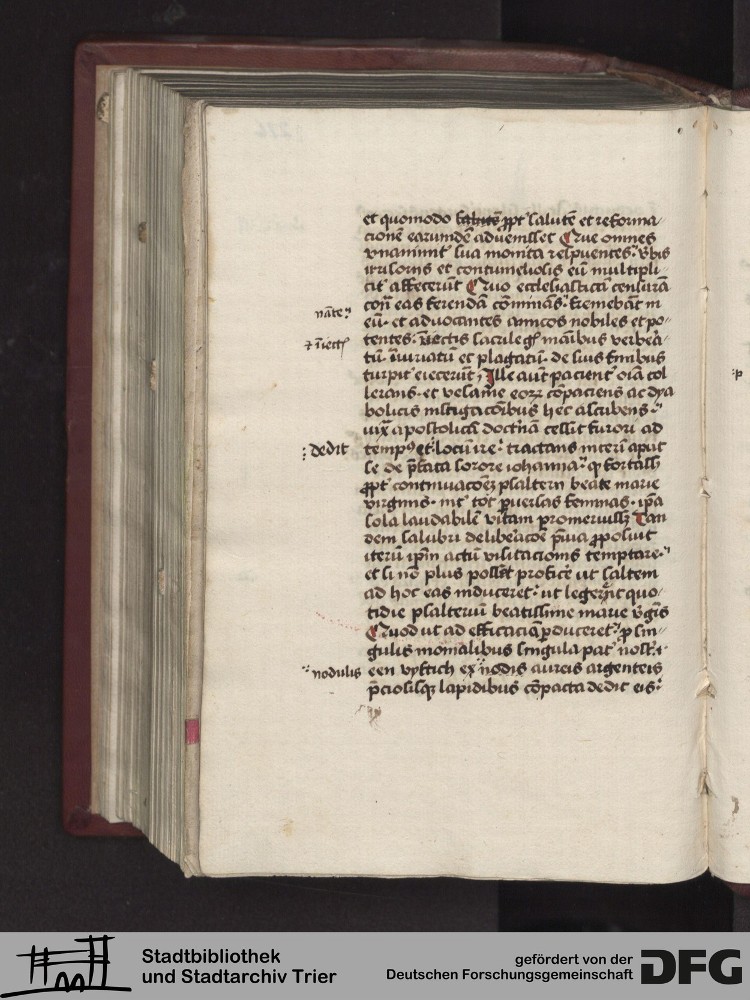 et quomodo salutē ꝓpt' salutē et reforma-
cionē earumdē advenisset Que omnes
vnanimit' sua monita respuentes· v'bis
irrisoriis et contumeliosis eū multipli
cit' affecerūt Quo ecclesiasticā censurā
cont̄ eas ferendā cōminās· fremebāt in
nāte·
eū· et advocantes amicos nobiles et po-
⁊ īiectꝭ
tentes· sacrilegꝭ manibus verbera
tū· īiuriatū et plagatū· de suis finibus
turpit' eiecerūt Ille aūt pacient' oīa tol
lerans· et vesanie eoꝝ cōpaciens ac dya
bolicis instigacōibus hec ascribens·
iuxͣ apostolicā doctnā cessit furori ad
: dedit
temp⁹ et locū ire· tractans interī aput
se de p̄fata sorore iohanna· ꝙ fortassꝭ
ꝓpt' continuacōeꝫ psalterii beate marie
virginis· int' tot ꝑversas feminas· ipā
sola laudabilē vitam promeruissꝫ Tan
dem salubri deliberacōe p̄via ꝓposuit
iterū ipm̄ actū visitacionis temptare·
et si nō plus posset proficē ut saltem
ad hoc eas induceret· ut legerēt quo-
tidie psalteriū beatissime marie v'gīs
Quod ut ad efficaciā ꝑduceret· ꝓ sin-
gulis monialibus singula pat' nost'·
: nodulis
een vyftich ex nodis aureis argenteis
p̄ciosisqꝫ lapidibus cōpacta dedit eis·
:p
Stadtbibliothek
und Stadtarchiv Trier
gefördert von der
Deutschen Forschungsgemeinschaft
DFG